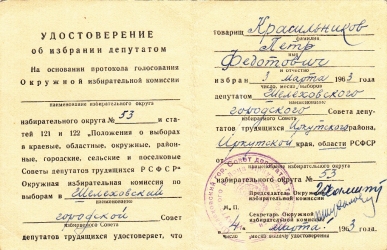 УДОСТОВЕРЕНИЕ
об избрании депутатом
На основании протокола голосования
Окружной избирательной комиссии
наименование избирательного округа
избирательного округа № 53 и ста-
тей 121 и 122 „Положения о выборах
в краевые, областные, окружные, район-
ные, городские, сельские и поселковые
Советы депутатов трудящихся РСФСР"
Окружная избирательная комиссия по
выборам в Шелеховский
городской Совет
депутатов трудящихся удостоверяет, что
товарищ Красильников
фамилия
Петр
имя
Федотович
и отчество
избран 3 марта 1963 года
число, месяц выборов
депутатом Шелеховского
наименование
городского Совета
депутатов трудящихся Иркутского района,
Иркутской края, области РСФСР
от
наименование избирательного округа
избирательного округа № 53
Председатель Окружной
избирательной комиссии
М. П.
Секретарь Окружной
избирательной комиссии
4 марта 1963 г.